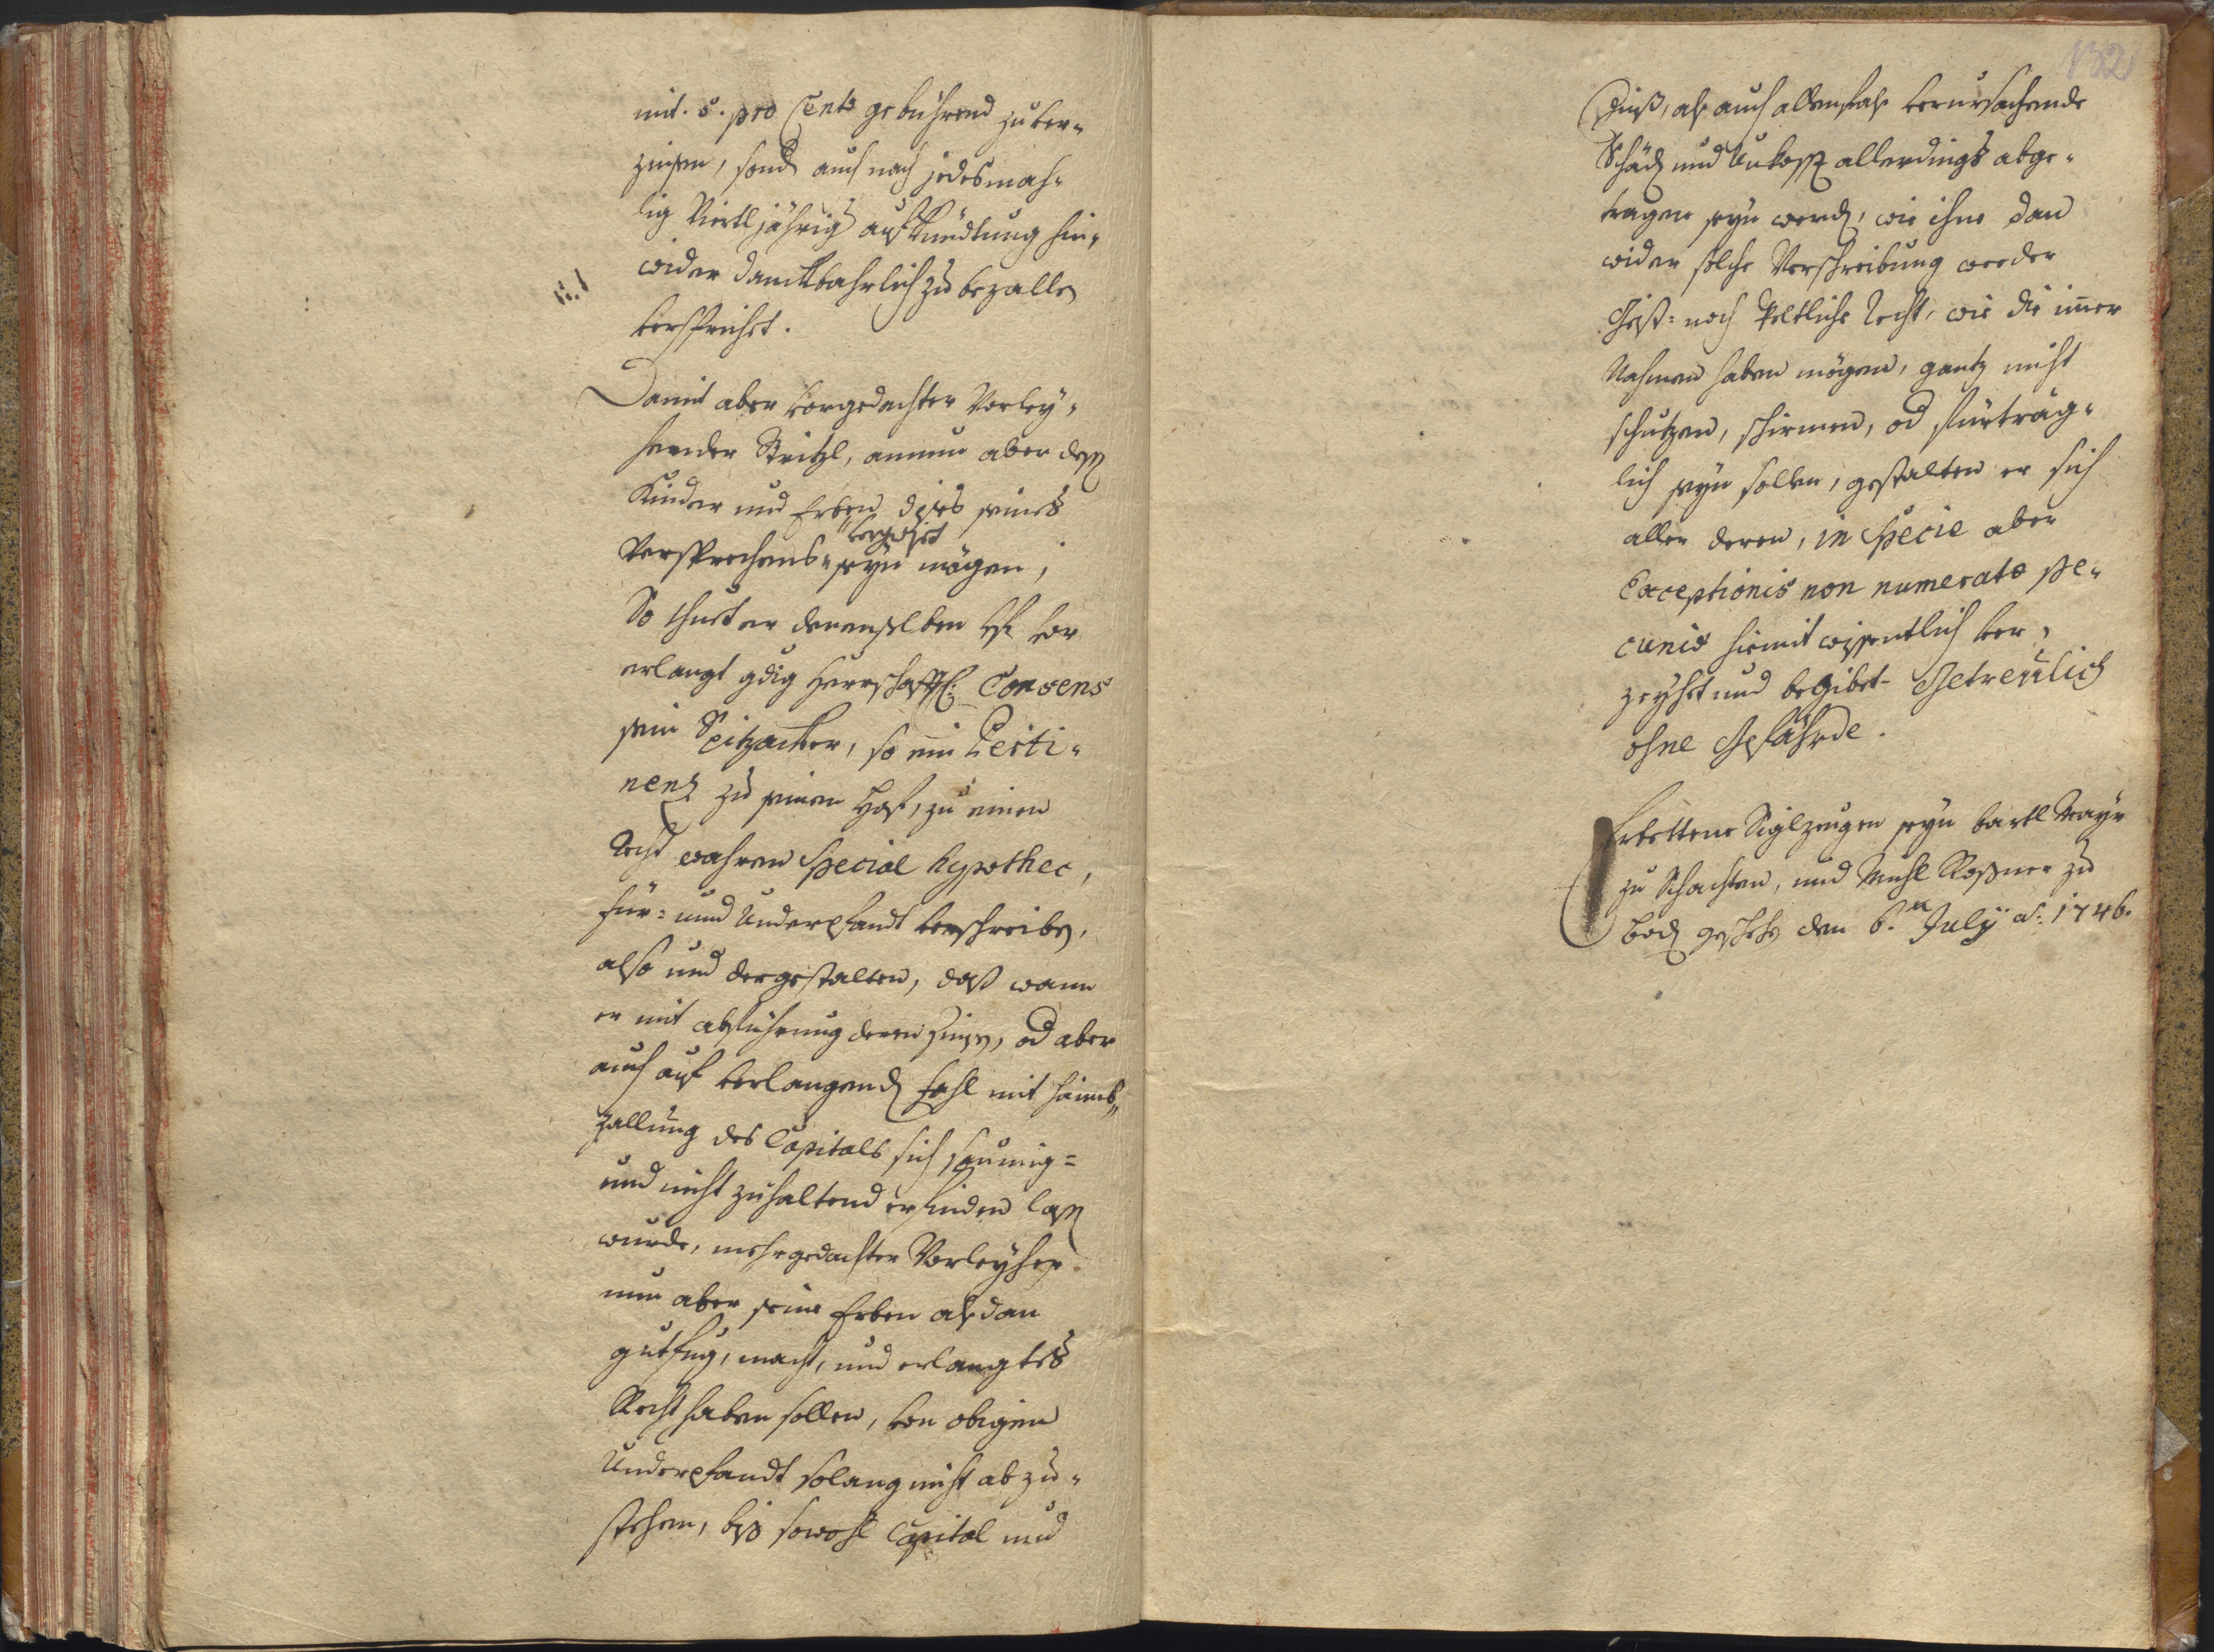 mit. 5. pro Cento gebührend zu ver-
zinsen, sond auch nach jedesmah-
lig Viertljährig aufkündtung hin-
wider danckbahrlich zu bezallen
verspricht.
Damit aber vorgedachter Verley-
hender Stritzl, annun aber dessen
Kinder und Erben dises seines
Versprechens "vergwist" seyn mögen,
So thuet er denenselben bis vor
erlangt gdig Herrschafftl: Consens
sein Spitzacker, so ein Perti-
nenz zu seinen Hof, zu einen
Recht wahren Special hypothec,
für- und Underpfandt verschreiben,
also und dergestalten, daß wann
er mit abführung deren Zinsen, od aber
auch auf verlangenden fahl mit haimb-
zallung des Capitals sich saumig-
und nicht zuhaltend erfinden lassen
wurde, mehrgedachter Verleyher
nun aber seine Erben alßdan
guet fueg, macht, und erlangtes
Recht haben sollen, von obigen
Underpfandt solang nicht abzu-
stehen, biß sowohl Capital und
132
Zinß, alß auch allenfahls verursachende
Schäden und Uncossten allerdings abge-
tragen seyn werden, wie ihne dan
wider solche Verschreibung weeder
Geist- noch Weltliche Recht, wie die imer
Nahmen haben mögen, gantz nicht
schutzen, schirmen, od fürträg-
lich seyn sollen, gestalten er sich
aller deren, in Specie aber
Exceptionis non numeratæ pe-
cuniæ hiemit wissentlich ver-
zeyhet und begibet. Getreulich
ohne Gefährde.
Erbettene Siglzeugen seyn Bartl Mayr
zu Schachten, und Michl Rossner zu
Bod geschehen den 6.ten July ao: 1746.